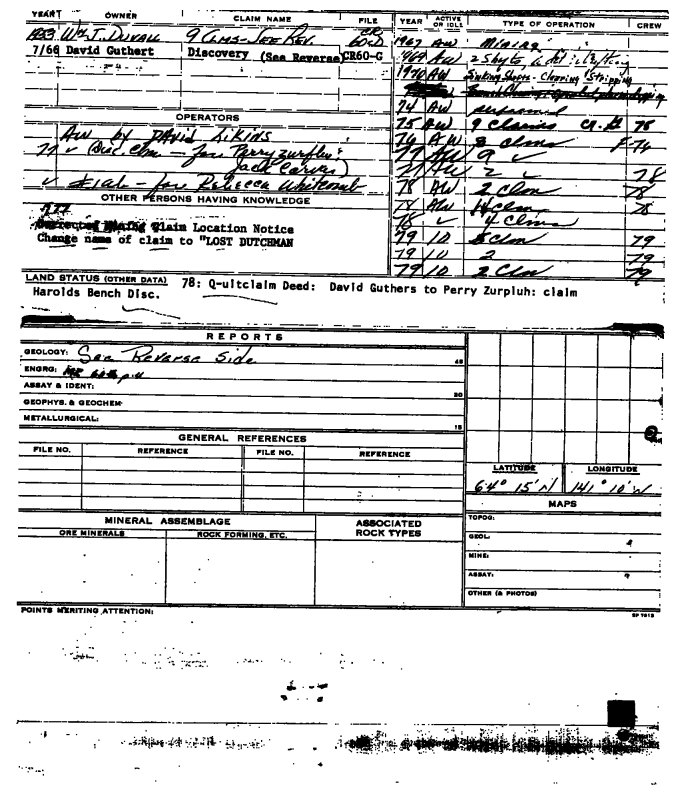 YEAR OWNER CLAIM NAME FILE
Wm J. DUVALL 9 CLMS - SEE REV.
7/66 David Guthert Discovery (See Reverse) CR60-G
OPERATORS
AW by DAVID LIKINS
77 ✓ (Disc. Clm. - for Perry Zurfluh:
Jack Carver)
✓ - for REBECCA Whitcomb
OTHER PERSONS HAVING KNOWLEDGE
Claim Location Notice
Change name of claim to "LOST DUTCHMAN
YEAR ACTIVE OR IDLE TYPE OF OPERATION CREW
1967 AW Mining
AW
1970 AW Sinking Shafts - Clearing & Stripping
74 AW performed
75 AW 9 Claims 75
76 AW 8 clms F-76
77 AW 9 ✓
77 AW 2 ✓ 78
78 AW 2 Clm 78
78 AW Clm 78
78 ✓ 4 Clms
79 10 Clm 79
79 10 2 79
79 10 2 Clm 79
LAND STATUS (OTHER DATA) 78: Q-uitclaim Deed: David Guthers to Perry Zurpluh: claim
Harolds Bench Disc.
REPORTS
GEOLOGY: See Reverse Side 45
ENGRG:
ASSAY & IDENT: 30
GEOPHYS. & GEOCHEM
METALLURGICAL: 15
GENERAL REFERENCES
FILE NO. REFERENCE FILE NO. REFERENCE
LATITUDE LONGITUDE
64° 15' N 141° 10' W
MAPS
TOPOG:
GEOL:
MINE:
ASSAY:
OTHER (& PHOTOS)
MINERAL ASSEMBLAGE ASSOCIATED ROCK TYPES
ORE MINERALS ROCK FORMING, ETC.
POINTS MERITING ATTENTION:
SP 7813